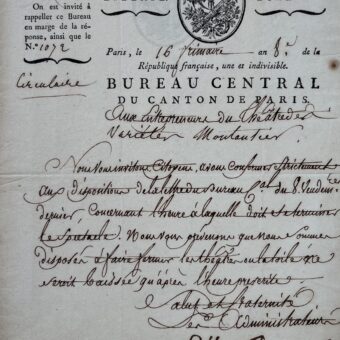 On est invité à
rappeller ce Bureau
en marge de la ré-
ponse, ainsi que le
N.º 1072
Paris, le 16 frimaire an 8.e de la
République française, une et indivisible.
Circulaire
BUREAU CENTRAL
DU CANTON DE PARIS
Aux Entrepreneurs du Théâtre des
Variétés Montansier
Nous vous invitons Citoyens, a vous conformer strictement
aux dispositions de la lettre du Bureau C.al du 8 Vendem.re
dernier, concernant l'heure à laquelle doit se terminer
le spectacle. Nous vous prévenons que nous sommes
disposés à faire fermer les théâtres ou la toile ne
seroit baissée qu'après l'heure prescrite
Salut et fraternité
Les Administrateurs